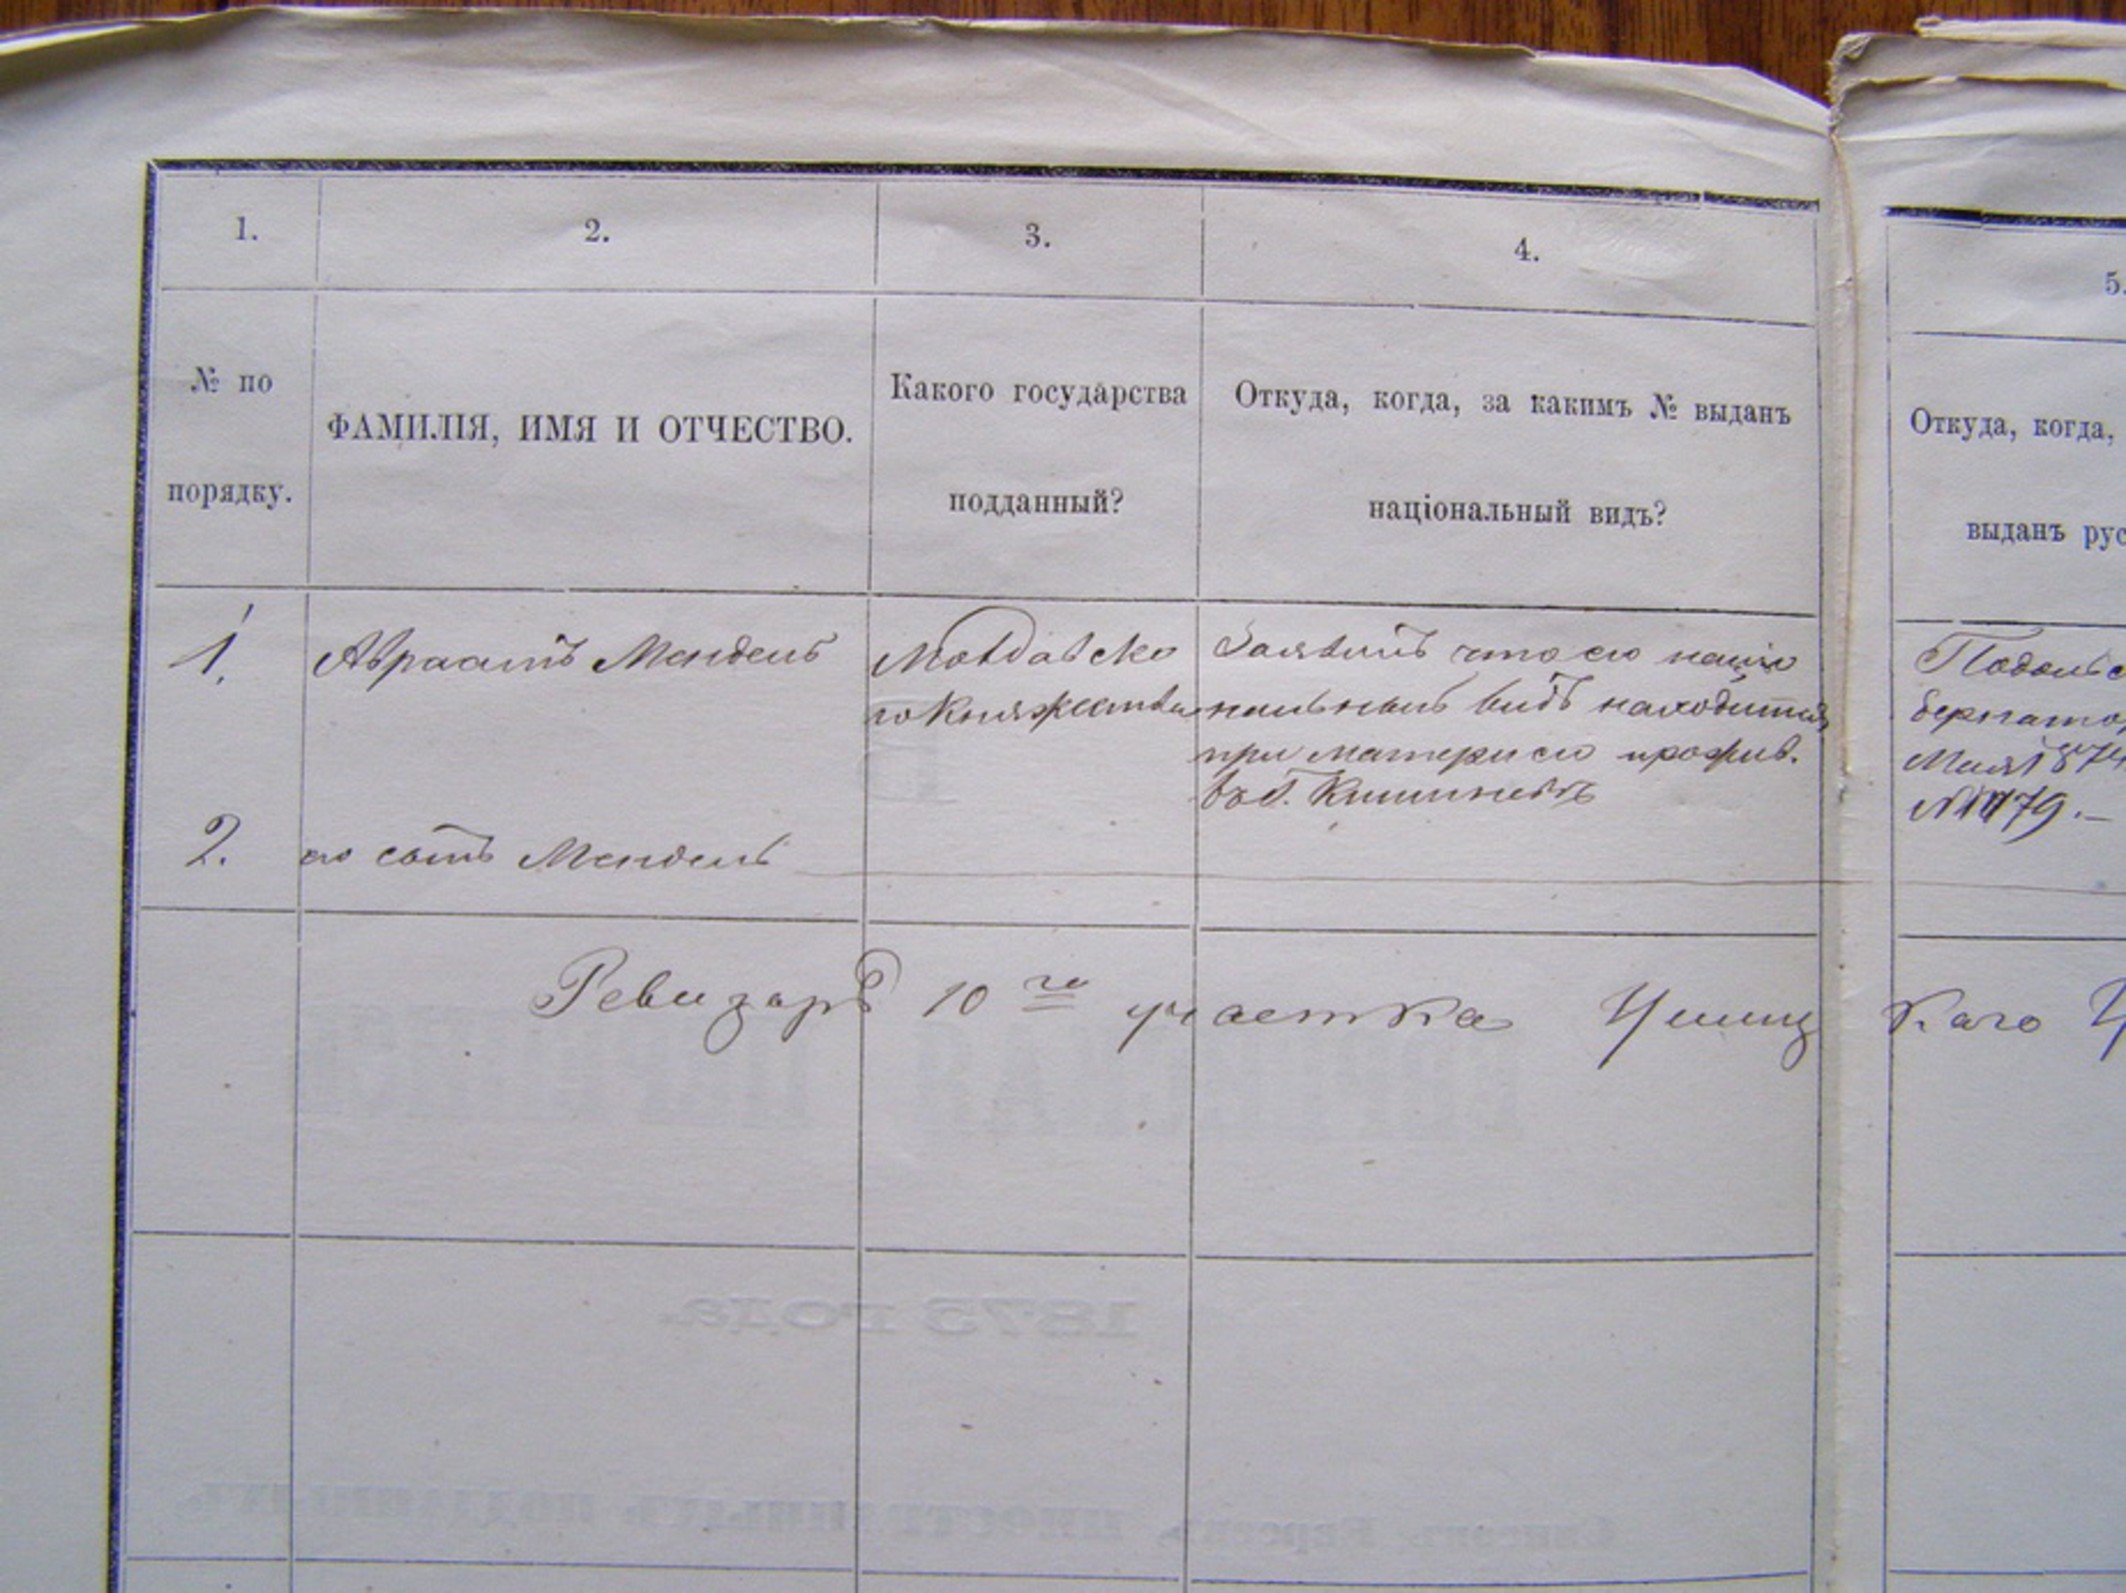 1.
2.
3.
4.
5.
№ по
порядку.
ФАМИЛІЯ, ИМЯ И ОТЧЕСТВО.
Какого государства
подданный?
Откуда, когда, за какимъ № выданъ
національный видъ?
Откуда, когда,
выданъ рус
1.
Авраамъ Мендель
Молдавско
го Княжества
Заявилъ что его націо
нальный видъ находится
при матери его прожив.
въ г. Кишиневѣ
Подольс
бернато
Мая 1874
№ 1179.—
2.
его сынъ Мендель
Ревизоръ 10го участка Ушиц каго У
1875 года.
Списокъ Евреевъ, иностранныхъ подданныхъ.